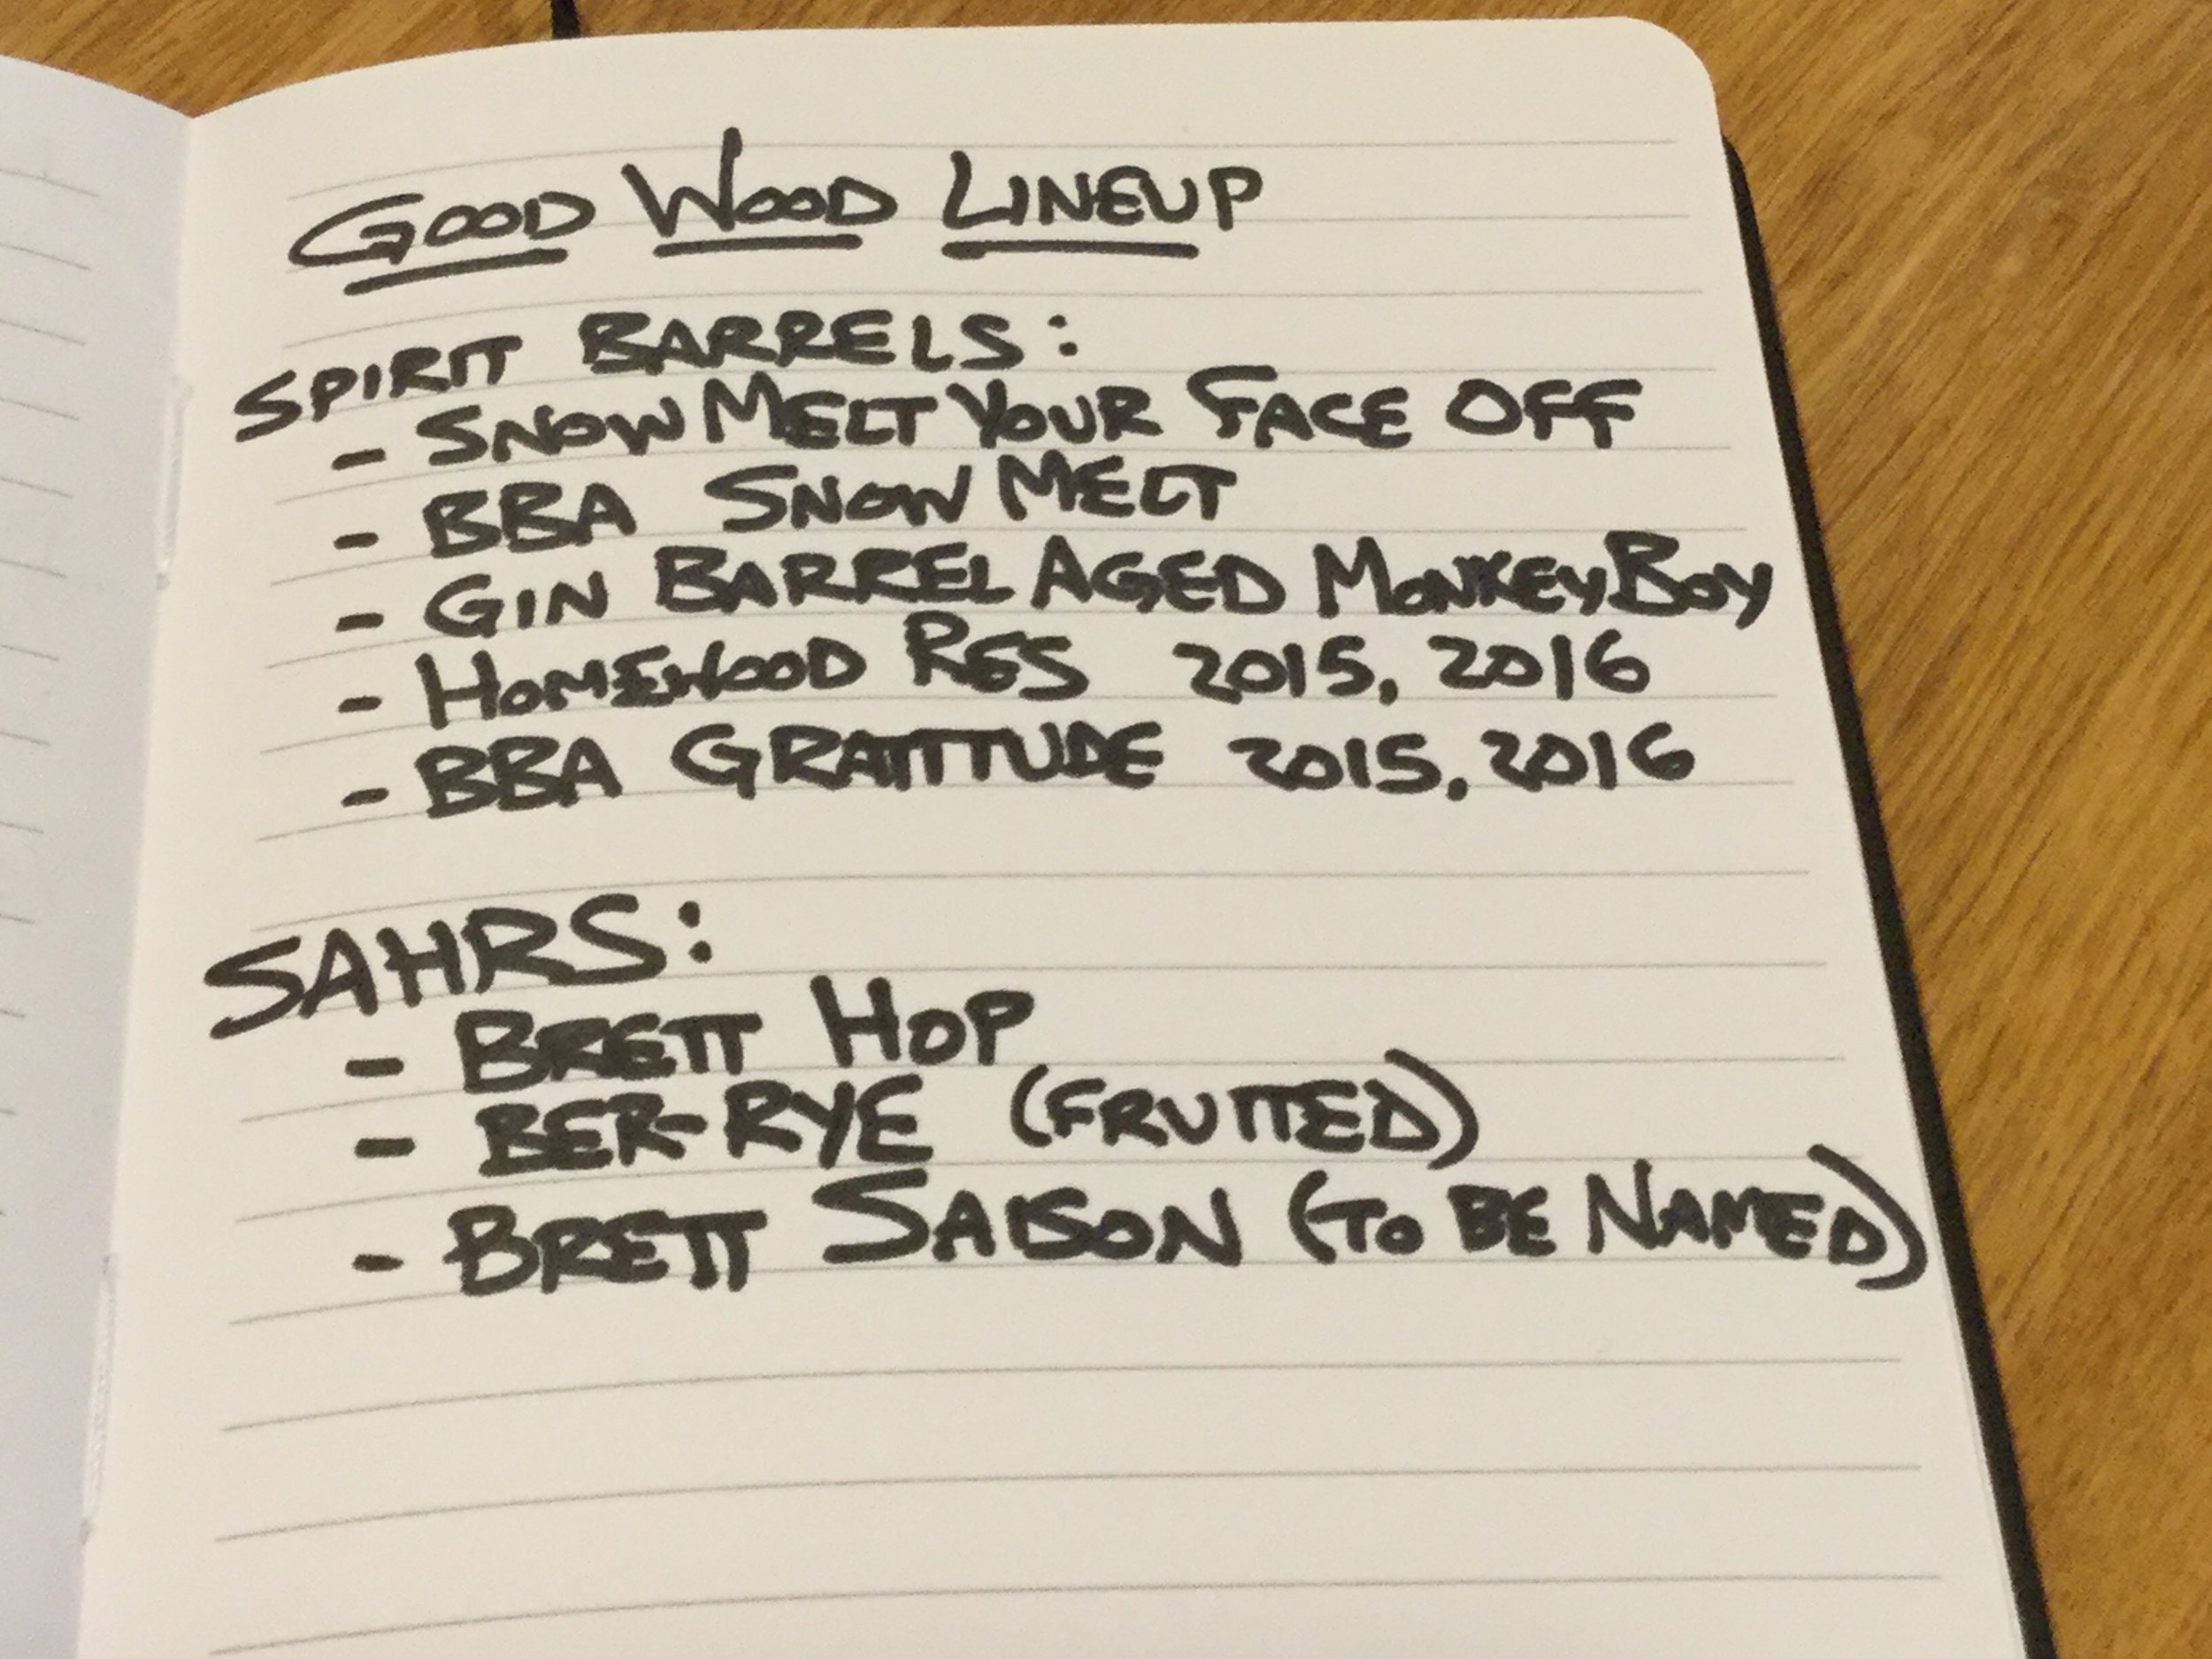 GOOD WOOD LINEUP
SPIRIT BARRELS:
- SNOWMELT YOUR FACE OFF
- BBA SNOWMELT
- GIN BARREL AGED MONKEYBOY
- HOMEWOOD RES 2015, 2016
- BBA GRATITUDE 2015, 2016
SAHRS:
- BRETT HOP
- BER-RYE (FRUITED)
- BRETT SAISON (TO BE NAMED)